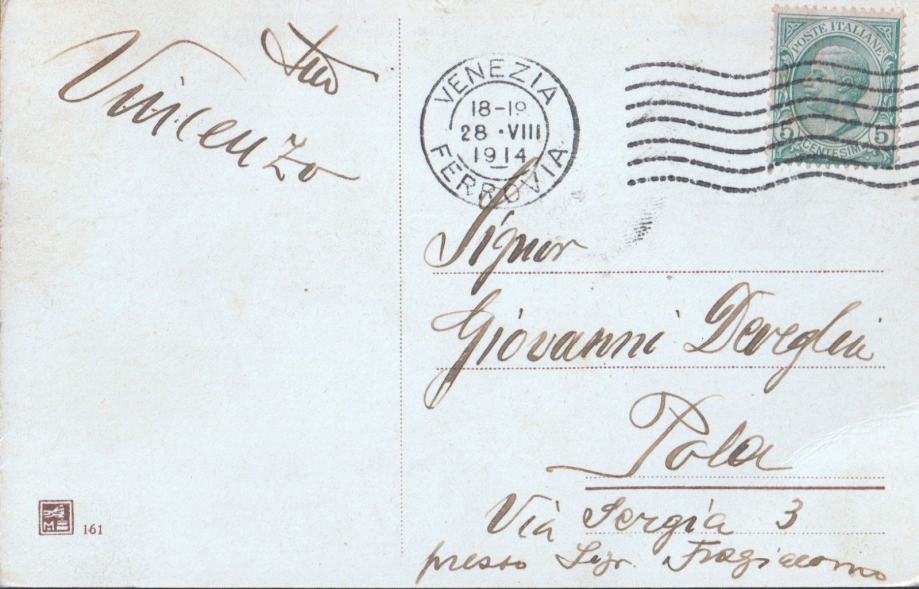 tuo
Vincenzo
VENEZIA
18-19
28 · VIII
1914
FERROVIA
POSTE ITALIANE
5 5
CENTESIMI
Signor
Giovanni Deveglia
Pola
Via Sergia 3
presso Sigr. Fragiacomo
161